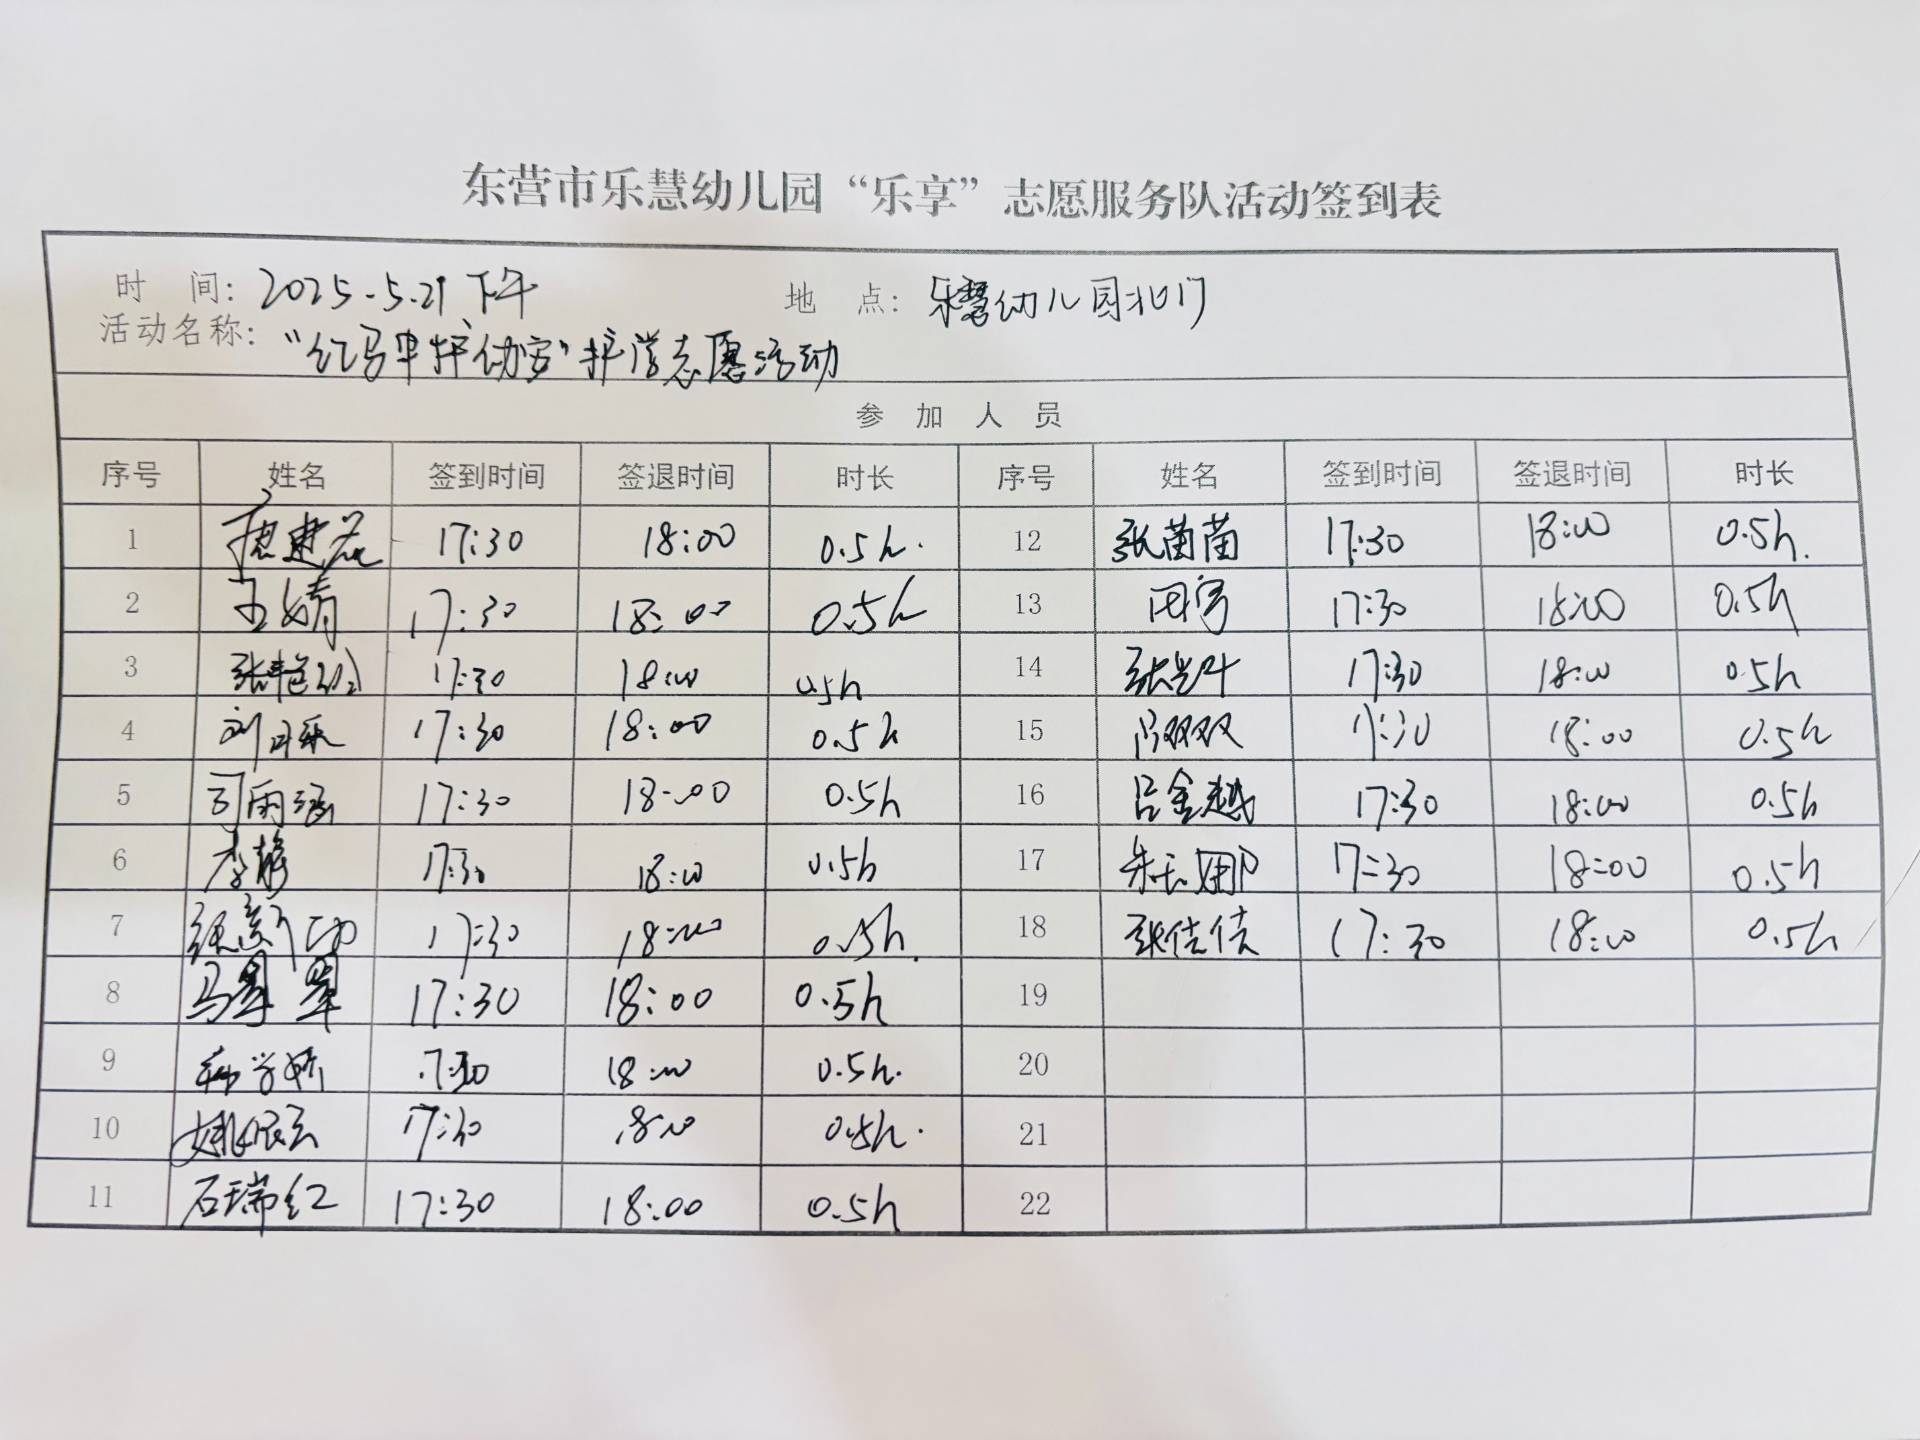 东营市乐慧幼儿园“乐享”志愿服务队活动签到表
时 间: 2025.5.21 下午 地 点: 乐慧幼儿园北门
活动名称: “红马甲护幼安”护学志愿活动
参 加 人 员
序号 姓名 签到时间 签退时间 时长 序号 姓名 签到时间 签退时间 时长
1 17:30 18:00 0.5h. 12 张茵茵 17:30 18:00 0.5h.
2 王婧 17:30 18:00 0.5h 13 田宇 17:30 18:00 0.5h
3 17:30 18:00 0.5h 14 17:30 18:00 0.5h
4 17:30 18:00 0.5h 15 闫双双 17:30 18:00 0.5h
5 司雨涵 17:30 18:00 0.5h 16 吕金越 17:30 18:00 0.5h
6 李静 17:30 18:00 0.5h 17 17:30 18:00 0.5h
7 17:30 18:00 0.5h. 18 张佳佳 17:30 18:00 0.5h
8 马翠翠 17:30 18:00 0.5h 19
9 17:30 18:00 0.5h. 20
10 17:30 18:00 0.5h. 21
11 石瑞红 17:30 18:00 0.5h 22